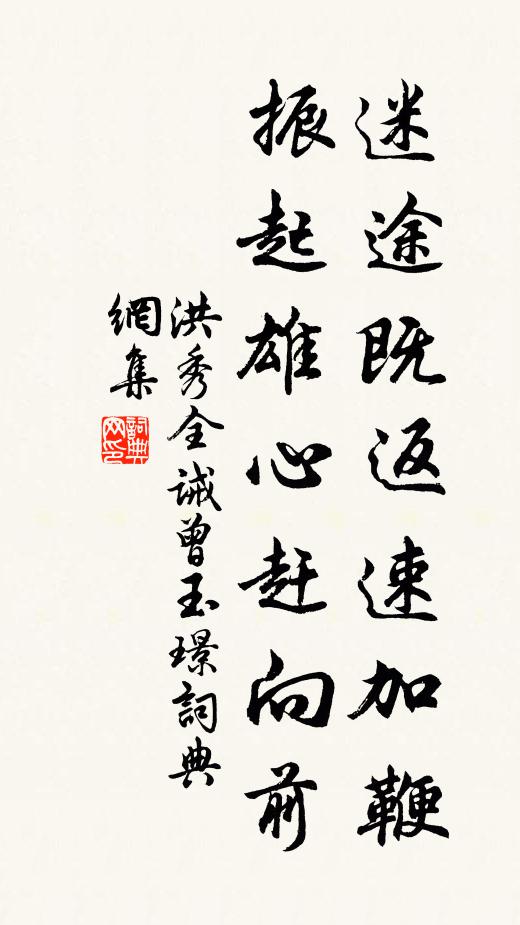 迷途既返速加鞭
振起雄心赶向前
洪秀全誡曾玉璟詞典
網集
詞典
网印